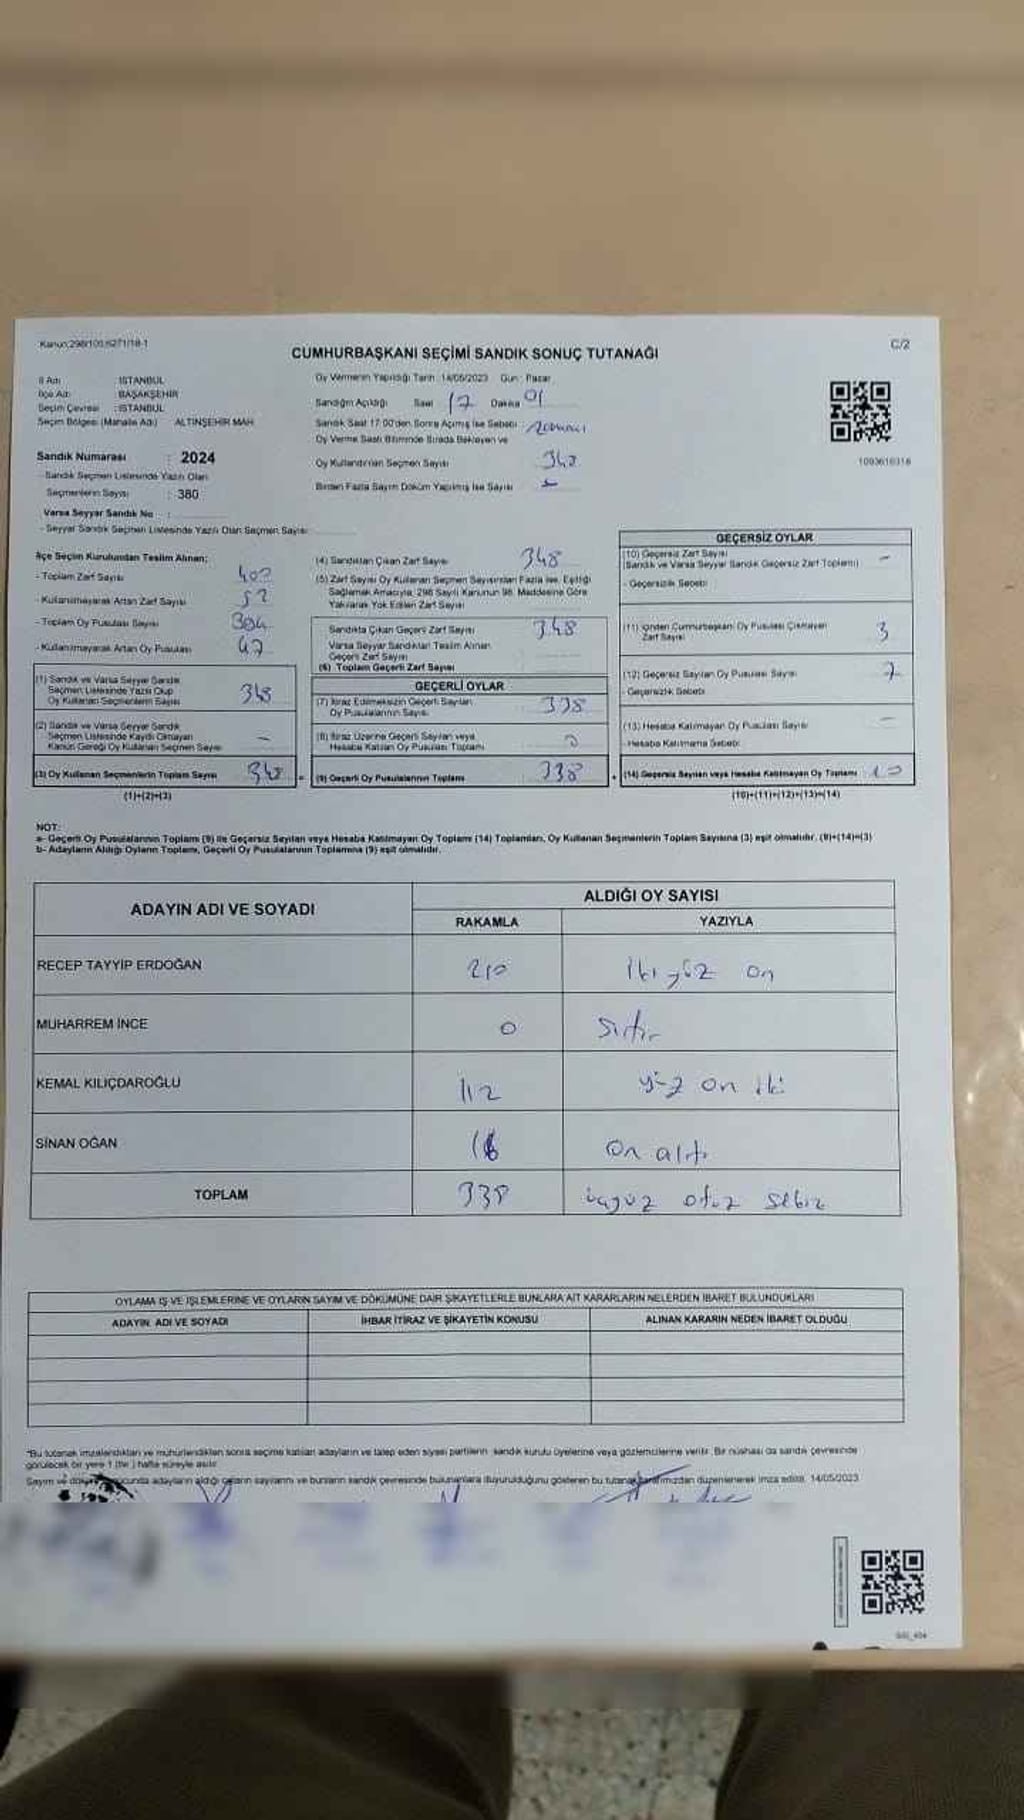 Kanun:298/105;6271/18-1
C/2
CUMHURBAŞKANI SEÇİMİ SANDIK SONUÇ TUTANAĞI
İl Adı : İSTANBUL
İlçe Adı : BAŞAKŞEHİR
Seçim Çevresi : İSTANBUL
Seçim Bölgesi (Mahalle Adı) ALTINŞEHİR MAH.
Sandık Numarası : 2024
- Sandık Seçmen Listesinde Yazılı Olan
Seçmenlerin Sayısı : 380
Varsa Seyyar Sandık No :
- Seyyar Sandık Seçmen Listesinde Yazılı Olan Seçmen Sayısı
Oy Vermenin Yapıldığı Tarih :14/05/2023 Gün : Pazar
Sandığın Açıldığı Saat 17 Dakika 01
Sandık Saat 17.00'den Sonra Açılmış İse Sebebi
Oy Verme Saati Bitiminde Sırada Bekleyen ve
Oy Kullandırılan Seçmen Sayısı
Birden Fazla Sayım Döküm Yapılmış İse Sayısı -
1093610316
İlçe Seçim Kurulundan Teslim Alınan;
- Toplam Zarf Sayısı
- Kullanılmayarak Artan Zarf Sayısı 52
- Toplam Oy Pusulası Sayısı
- Kullanılmayarak Artan Oy Pusulası
(1) Sandık ve Varsa Seyyar Sandık
Seçmen Listesinde Yazılı Olup
Oy Kullanan Seçmenlerin Sayısı 348
(2) Sandık ve Varsa Seyyar Sandık
Seçmen Listesinde Kaydı Olmayan
Kanun Gereği Oy Kullanan Seçmen Sayısı -
(3) Oy Kullanan Seçmenlerin Toplam Sayısı 348
(1)+(2)=(3)
(4) Sandıktan Çıkan Zarf Sayısı 348
(5) Zarf Sayısı Oy Kullanan Seçmen Sayısından Fazla ise, Eşitliği
Sağlamak Amacıyla, 298 Sayılı Kanunun 98. Maddesine Göre
Yakılarak Yok Edilen Zarf Sayısı
Sandıkta Çıkan Geçerli Zarf Sayısı 348
Varsa Seyyar Sandıktan Teslim Alınan
Geçerli Zarf Sayısı
(6) Toplam Geçerli Zarf Sayısı
GEÇERLİ OYLAR
(7) İtiraz Edilmeksizin Geçerli Sayılan
Oy Pusulalarının Sayısı 338
(8) İtiraz Üzerine Geçerli Sayılan veya
Hesaba Katılan Oy Pusulası Toplamı 0
(9) Geçerli Oy Pusulalarının Toplamı 338
GEÇERSİZ OYLAR
(10) Geçersiz Zarf Sayısı
(Sandık ve Varsa Seyyar Sandık Geçersiz Zarf Toplamı) -
- Geçersizlik Sebebi :
(11) İçinden Cumhurbaşkanı Oy Pusulası Çıkmayan
Zarf Sayısı 3
(12) Geçersiz Sayılan Oy Pusulası Sayısı 7
- Geçersizlik Sebebi :
(13) Hesaba Katılmayan Oy Pusulası Sayısı -
- Hesaba Katılmama Sebebi:
(14) Geçersiz Sayılan veya Hesaba Katılmayan Oy Toplamı 10
(10)+(11)+(12)+(13)=(14)
NOT:
a- Geçerli Oy Pusulalarının Toplamı (9) ile Geçersiz Sayılan veya Hesaba Katılmayan Oy Toplamı (14) Toplamları, Oy Kullanan Seçmenlerin Toplam Sayısına (3) eşit olmalıdır. (9)+(14)=(3)
b- Adayların Aldığı Oyların Toplamı, Geçerli Oy Pusulalarının Toplamına (9) eşit olmalıdır.
ADAYIN ADI VE SOYADI ALDIĞI OY SAYISI
RAKAMLA YAZIYLA
RECEP TAYYİP ERDOĞAN 210 iki yüz on
MUHARREM İNCE 0 sıfır
KEMAL KILIÇDAROĞLU 112 yüz on iki
SİNAN OĞAN 16 on altı
TOPLAM 338 üçyüz otuz sekiz
OYLAMA İŞ VE İŞLEMLERİNE VE OYLARIN SAYIM VE DÖKÜMÜNE DAİR ŞİKAYETLERLE BUNLARA AİT KARARLARIN NELERDEN İBARET BULUNDUKLARI
ADAYIN ADI VE SOYADI İHBAR İTİRAZ VE ŞİKAYETİN KONUSU ALINAN KARARIN NEDEN İBARET OLDUĞU
*Bu tutanak imzalandıktan ve mühürlendikten sonra seçime katılan adayların ve talep eden siyasi partilerin sandık kurulu üyelerine veya gözlemcilerine verilir. Bir nüshası da sandık çevresinde
görülecek bir yere 1 (bir) hafta süreyle asılır.
Sayım ve döküm sonucunda adayların aldığı oyların sayılarını ve bunların sandık çevresinde bulunanlara duyurulduğunu gösteren bu tutanak tarafımızdan düzenlenerek imza edildi. 14/05/2023